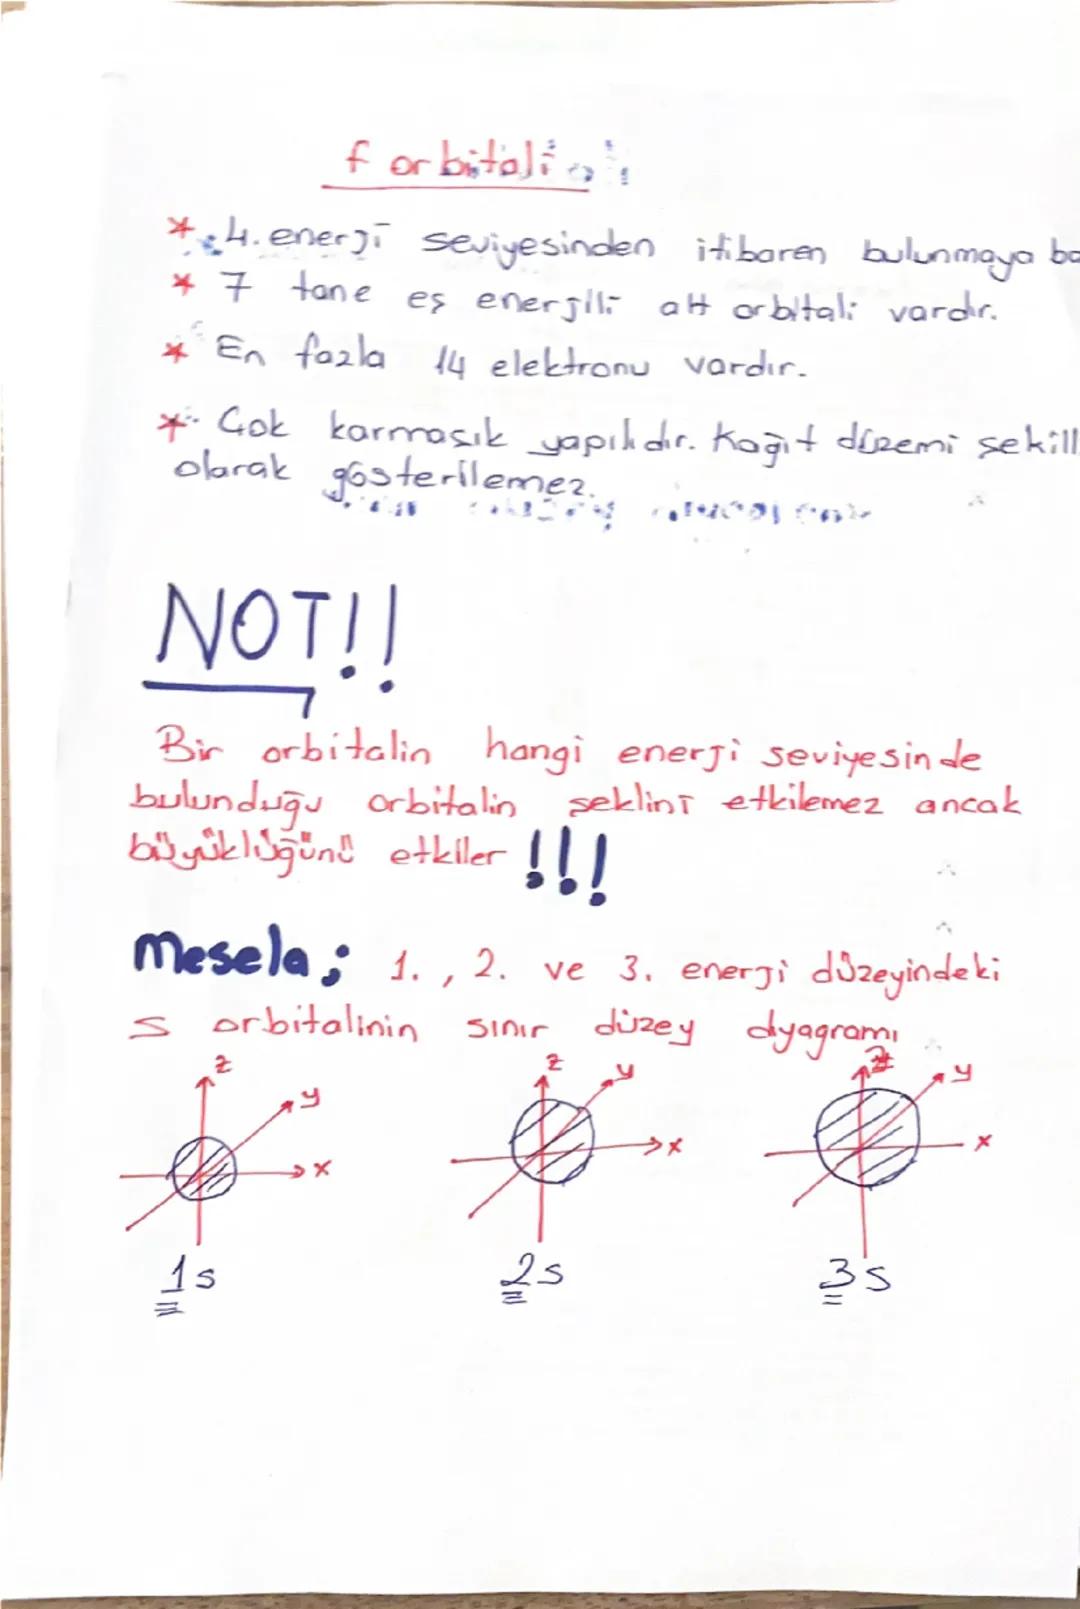 f orbitali
* 4. enerji seviyesinden itibaren bulunmaya ba
* 7 tane eş enerjili alt orbitali vardır.
* En fazla 14 elektronu vardır.
* Çok karmaşık yapılıdır. Kağıt düzemi şekill
olarak gösterilemez.
NOT!!
Bir orbitalin hangi enerji seviyesinde
bulunduğu orbitalin şeklini etkilemez ancak
büyüklüğünü etkiler !!!
Mesela; 1., 2. ve 3. enerji düzeyindeki
s orbitalinin sınır düzey dyagramı
z y x
z y x
z y x
1s 2s 3s